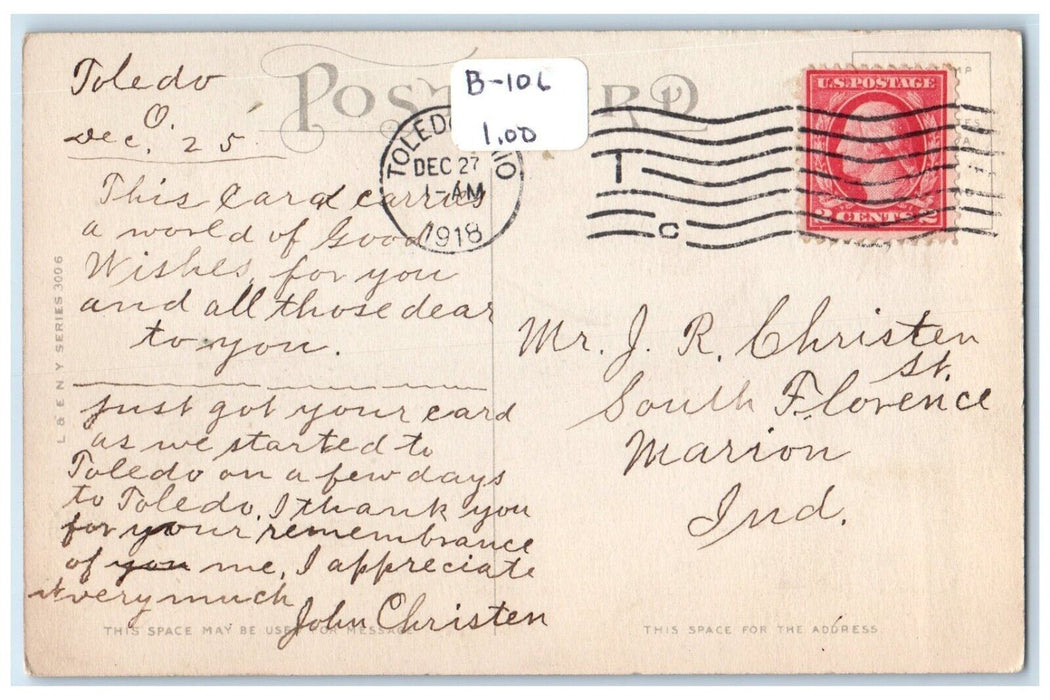 Toledo
O.
Dec. 25
This Card carries
a world of Good
Wishes, for you
and all those dear
to you.
Just got your card
as we started to
Toledo on a few days
to Toledo. I thank you
for your remembrance
of you me, I appreciate
it very much
John Christen
THIS SPACE MAY BE USED FOR MESSAGE
L & E N Y SERIES 3006
POST CARD
B-106
1.00
TOLEDO, OHIO
DEC 27
1-AM
1918
I
C
U.S. POSTAGE
2 CENTS 2
Mr. J. R. Christen
South Florence St.
Marion
Ind.
THIS SPACE FOR THE ADDRESS.